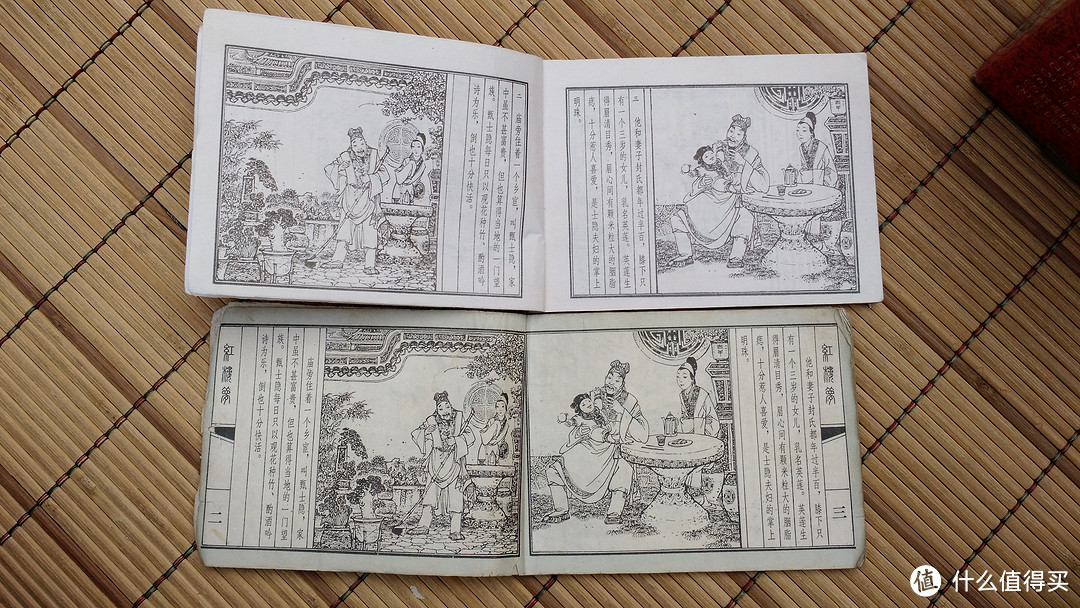 二 庙旁住着一个乡宦，叫甄士隐，家
中虽不甚富贵，但也算得当地的一门望
族。甄士隐每日只以观花种竹、酌酒吟
诗为乐，倒也十分快活。
三 他和妻子封氏都年过半百，膝下只
有一个三岁的女儿，乳名英莲。英莲生
得眉清目秀，眉心间有颗米粒大的胭脂
痣，十分惹人喜爱，是士隐夫妇的掌上
明珠。
庙旁住着一个乡宦，叫甄士隐，家
中虽不甚富贵，但也算得当地的一门望
族。甄士隐每日只以观花种竹、酌酒吟
诗为乐，倒也十分快活。
紅樓夢
二
紅樓夢
三
他和妻子封氏都年过半百，膝下只
有一个三岁的女儿，乳名英莲。英莲生
得眉清目秀，眉心间有颗米粒大的胭脂
痣，十分惹人喜爱，是士隐夫妇的掌上
明珠。
值 什么值得买